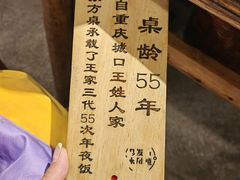 桌龄55年
自重庆城口王姓人家
方桌承载了王家三代55次年夜饭